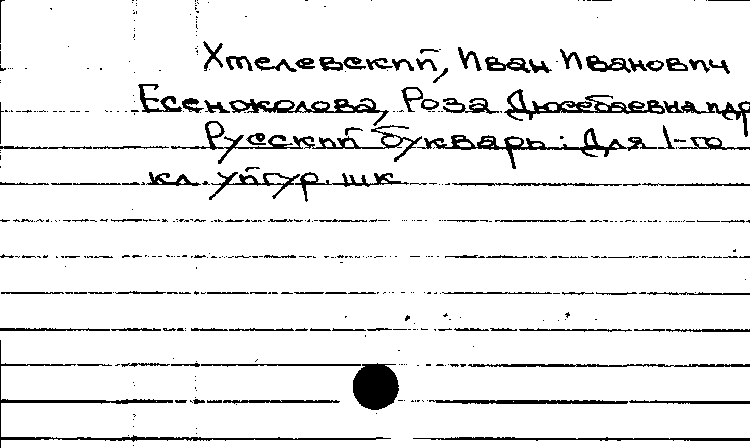 Хмелевский, Иван Иванович
Есенжолова, Роза Дюсебаевна и др
Русский букварь: Для 1-го
кл. уйгур. шк